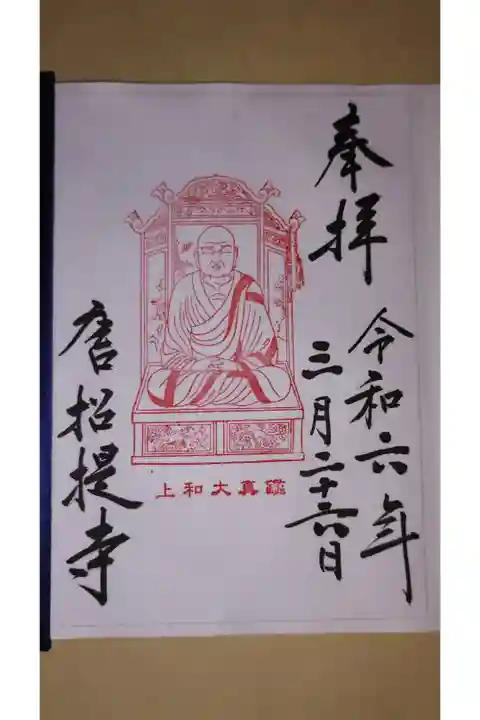 奉拝
令和六年
三月二十六日
上和大真鑑
唐招提寺